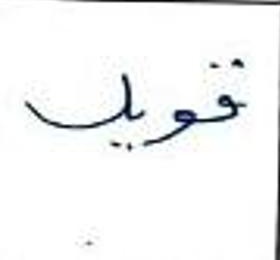 قويل